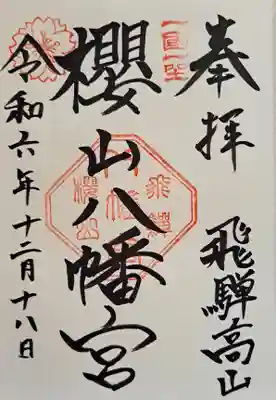 奉拝
飛騨高山
一国一社
櫻山八幡宮
令和六年十二月十八日